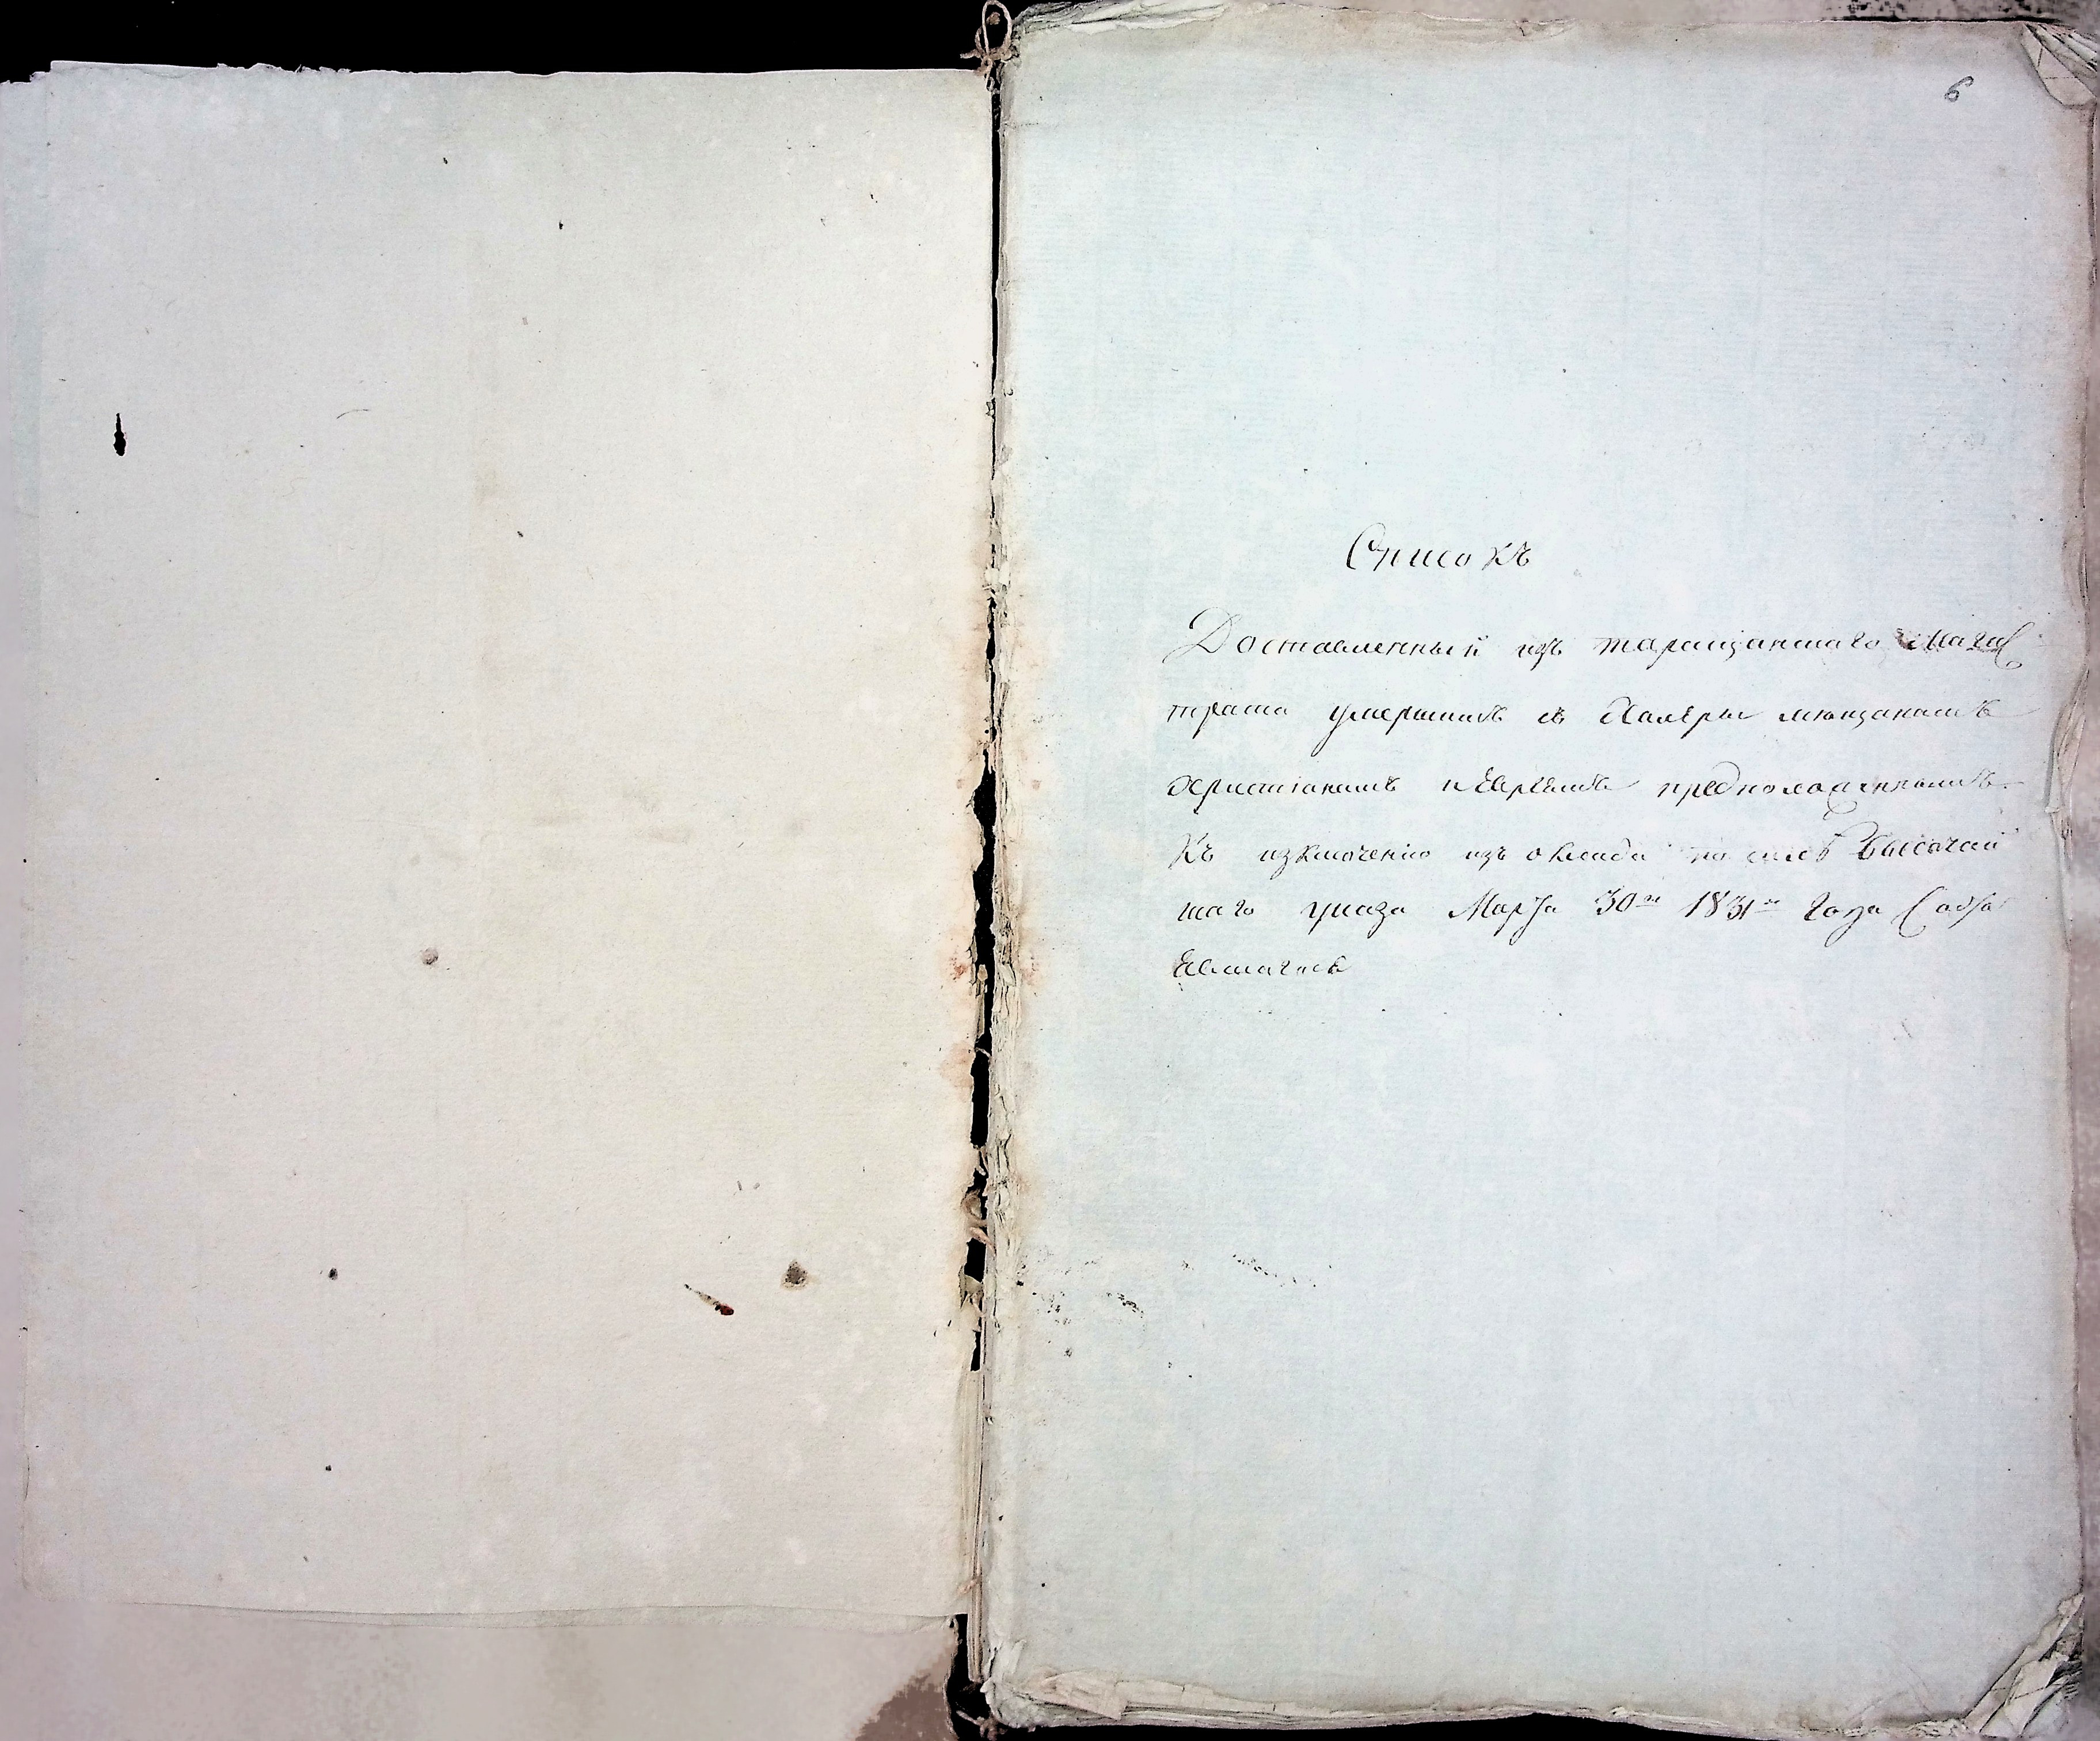 6
Списокъ
Доставленный изъ таращанскаго Магис
трата умершимъ съ Халѣры мющанамъ
христіанамъ и Евреямъ предположеннымъ
Къ изключенію изъ оклада по силѣ Высочай
шаго указа Марта 30го 1831го года Состо
явшагось